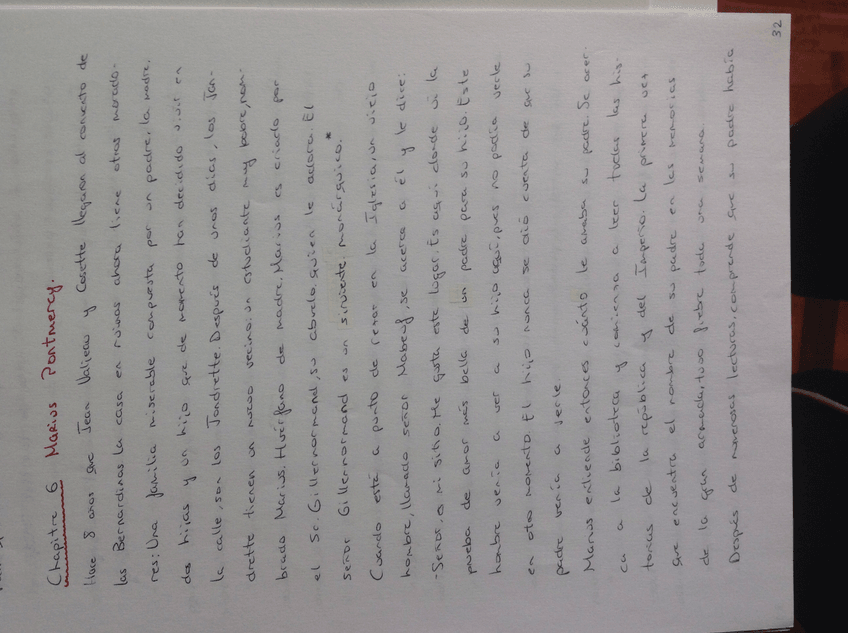 Chapitre 6 Marius Pontmercy.
Hace 8 años que Jean Valjean y Cosette llegaron al convento de
las Bernardinas. La casa en ruinas ahora tiene otros morado-
res: Una familia miserable compuesta por un padre, la madre,
dos hijas y un hijo que de momento han decidido vivir en
la calle, son los Jondrette. Después de unos días, los Jon-
drette tienen un nuevo vecino: un estudiante muy pobre, nom-
brado Marius. Huérfano de madre, Marius es criado por
el Sr. Gillernormand, su abuelo, quien le adora. El
señor Gillernormand es un sirviente, monárquico. *
Cuando está a punto de rezar en la Iglesia, un viejo
hombre, llamado señor Mabeuf, se acerca a él y le dice:
- Señor, a mi sitio. Me gusta este lugar. Es aquí donde vi la
prueba de amor más bella de un padre para su hijo. Este
hombre venía a ver a su hijo aquí, pues no podía verle
en otro momento. El hijo nunca se dió cuenta de que su
padre venía a verle.
Marius entiende entonces cuánto le amaba su padre. Se acer-
ca a la biblioteca y comienza a leer todas las his-
torias de la república y del Imperio. La primera vez
que encuentra el nombre de su padre en las memorias
de la gran armada, tuvo fiebre toda una semana.
Después de numerosas lecturas, comprende que su padre había
32